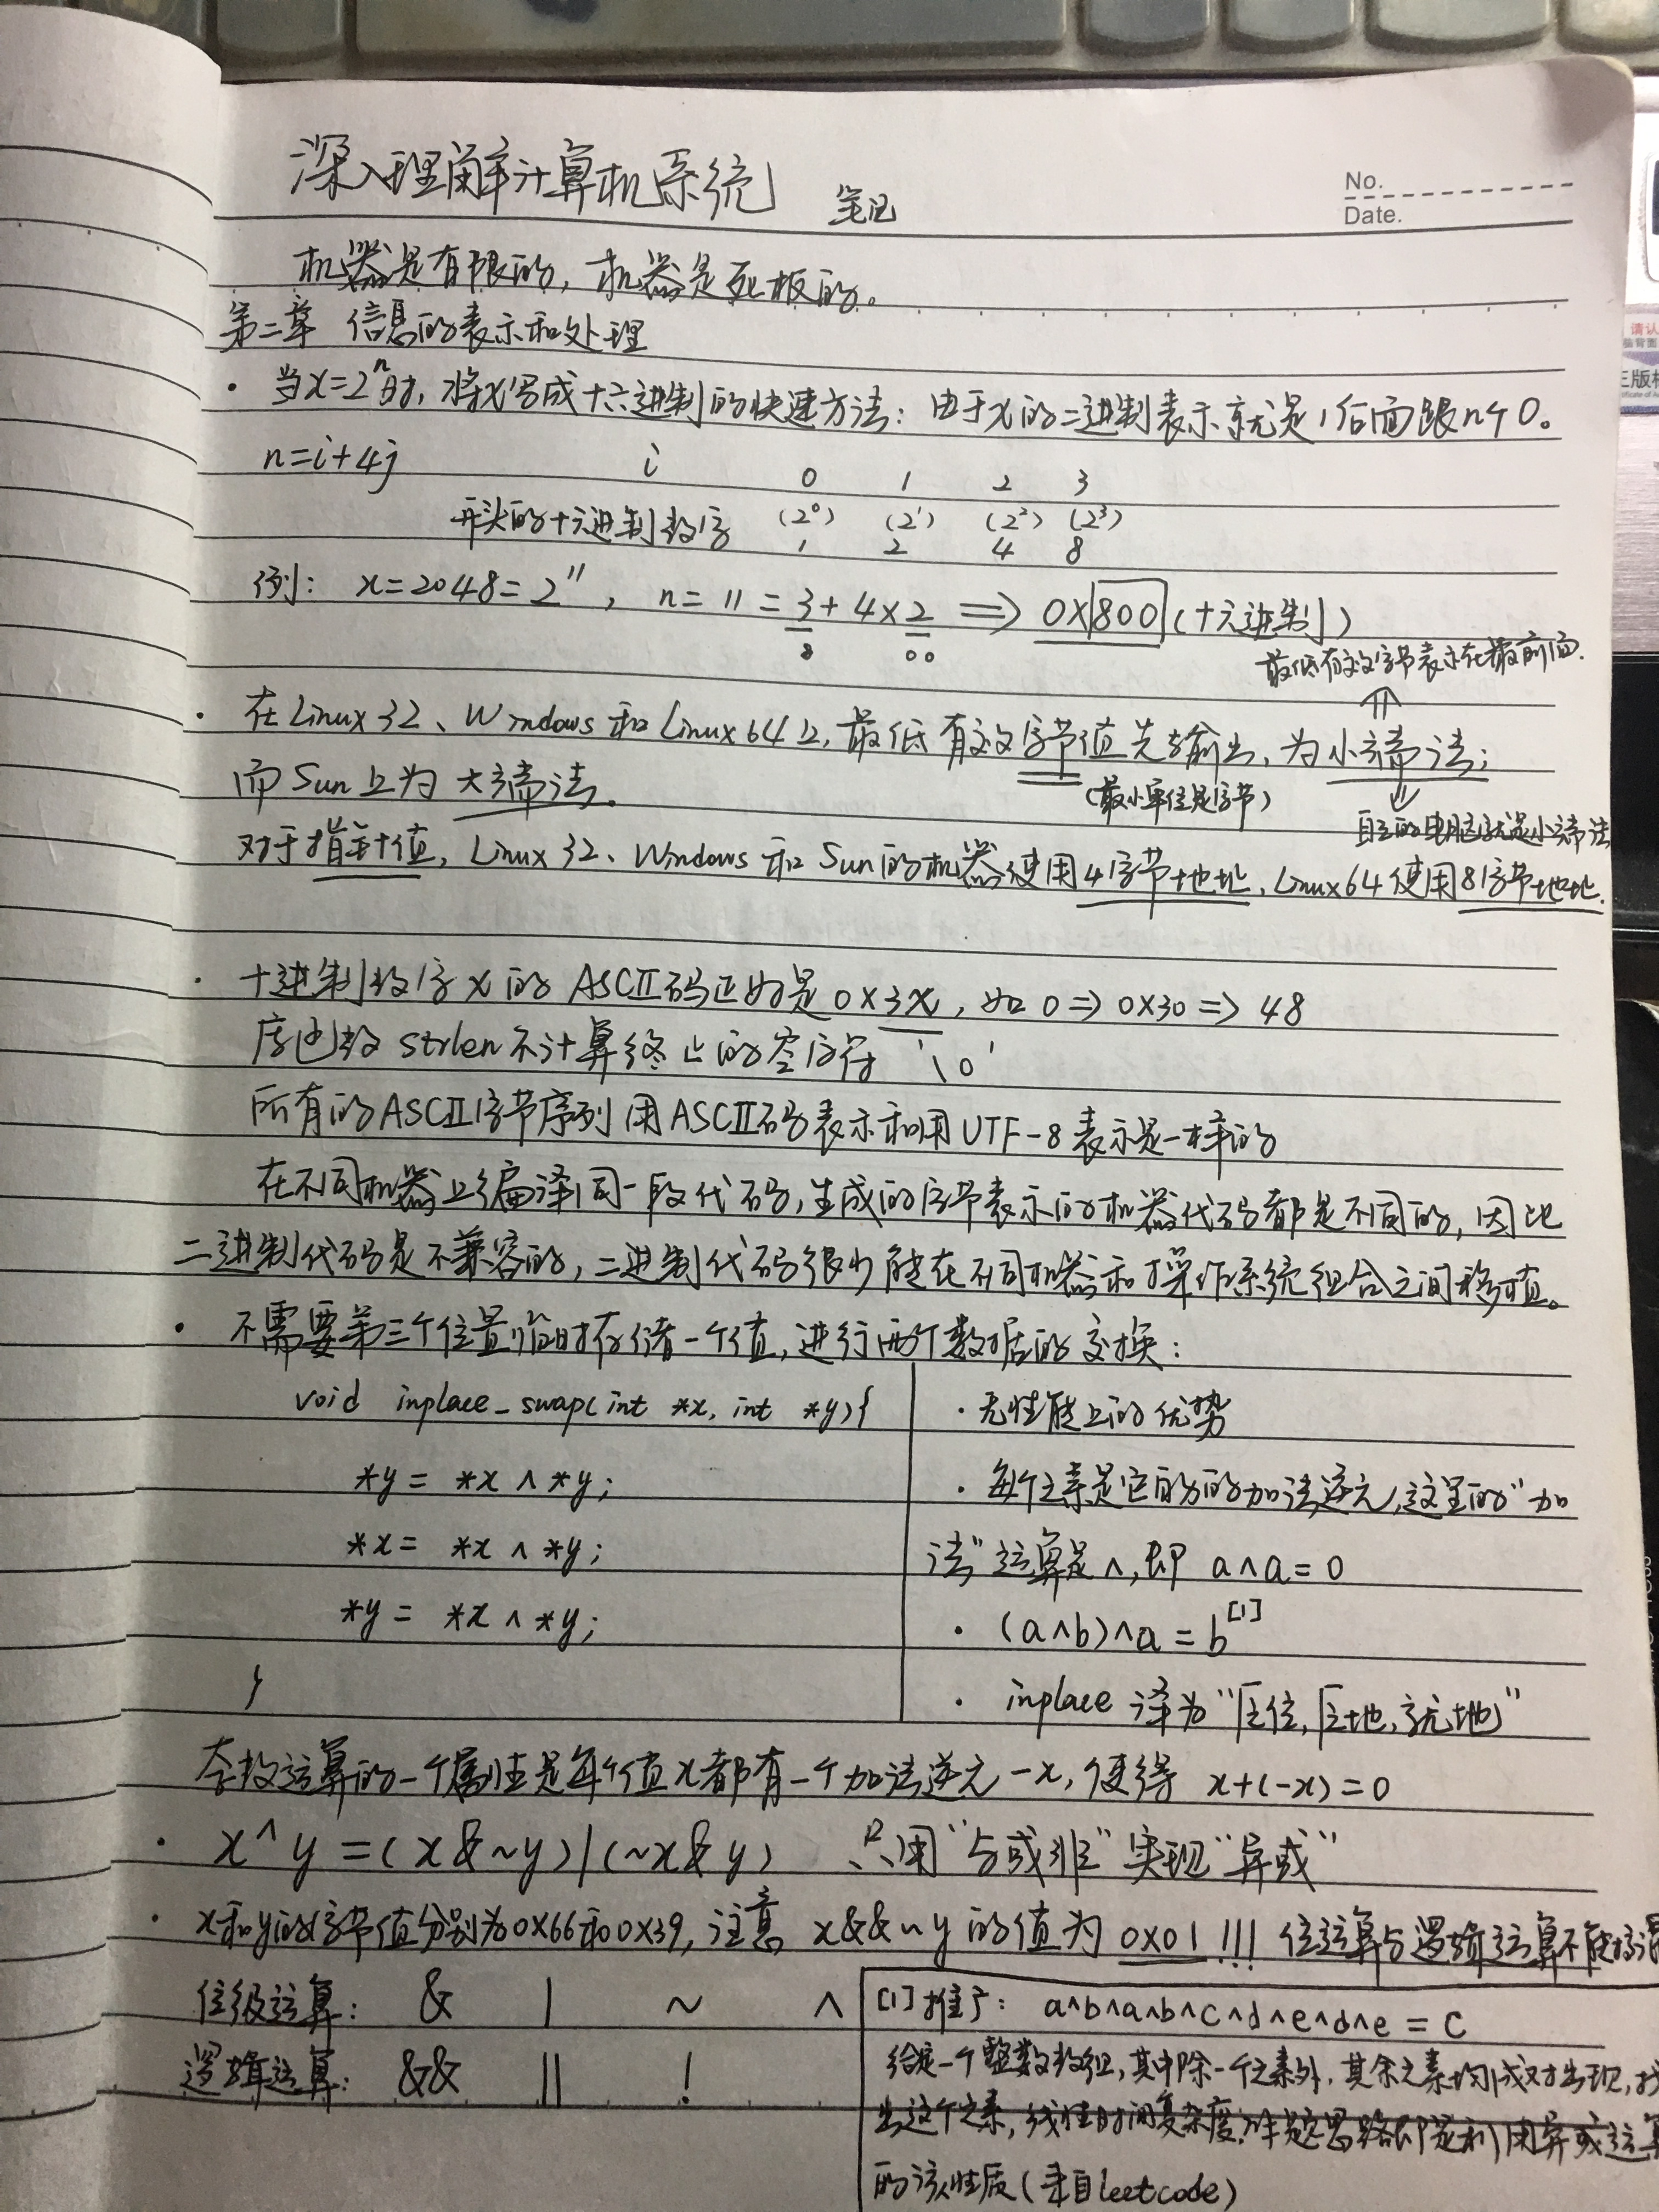 深入理解计算机系统 笔记
No.
Date.
机器是有限的，机器是死板的。
第二章 信息的表示和处理
· 当x=2ⁿ时，将x写成十六进制的快速方法：由于x的二进制表示就是1后面跟n个0。
n=i+4j i 0 1 2 3
(2⁰) (2¹) (2²) (2³)
开头的十六进制数字 1 2 4 8
例：x=2048=2¹¹，n=11=3+4×2 => 0x800（十六进制）
8 00
最低有效字节表示在最前面.
· 在Linux 32、Windows和Linux 64上，最低有效字节值先输出，为小端法；
而Sun上为大端法。
（最小单位是字节）
自己的电脑就是小端法
对于指针值，Linux 32、Windows和Sun的机器使用4字节地址，Linux 64使用8字节地址.
· 十进制数字x的ASCII码正好是0x3x，如0=>0x30=>48
库函数strlen不计算终止的空字符'\0'
所有的ASCII字节序列用ASCII码表示和用UTF-8表示是一样的
在不同机器上编译同一段代码，生成的字节表示的机器代码都是不同的，因此
二进制代码是不兼容的，二进制代码很少能在不同机器和操作系统组合之间移植。
· 不需要第三个位置临时存储一个值，进行两个数据的交换：
void inplace_swap(int *x, int *y){
*y = *x ^ *y;
*x = *x ^ *y;
*y = *x ^ *y;
}
· 无性能上的优势
· 每个元素是它自身的加法逆元，这里的“加
法”运算是^，即 a^a=0
· (a^b)^a=b[1]
· inplace 译为“原位，原地，就地”
整数运算的一个属性是每个值x都有一个加法逆元-x，使得 x+(-x)=0
· x^y=(x&~y)|(~x&y) 只用“与或非”实现“异或”
· x和y的字节值分别为0x66和0x39，注意 x&&~y的值为0x01!!! 位运算与逻辑运算不能搞混
位级运算：& | ~ ^
逻辑运算：&& || !
[1]推广：a^b^a^b^c^d^e^d^e=c
给定一个整数数组，其中除一个元素外，其余元素均成对出现，找
出这个元素，线性时间复杂度，解题思路即是利用异或运算
的该性质（来自leetcode）